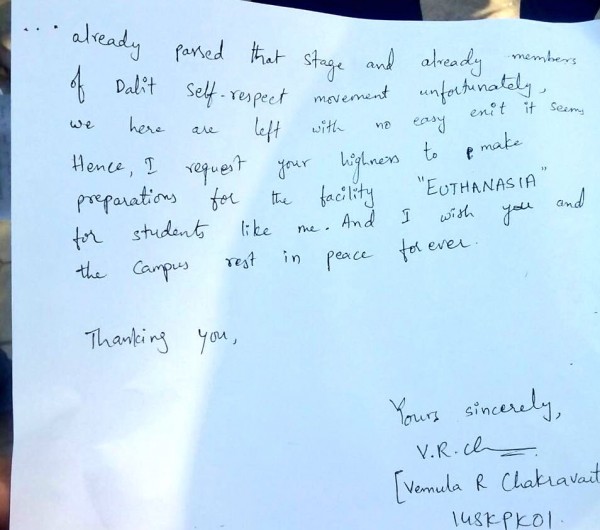 ... already passed that stage and already members
of Dalit Self-respect movement unfortunately,
we here are left with no easy exit it seems
Hence, I request your highness to make
preparations for the facility "EUTHANASIA"
for students like me. And I wish you and
the campus rest in peace for ever.
Thanking you,
Yours sincerely,
V.R.Ch
[Vemula R Chakravait
14SKPK01.